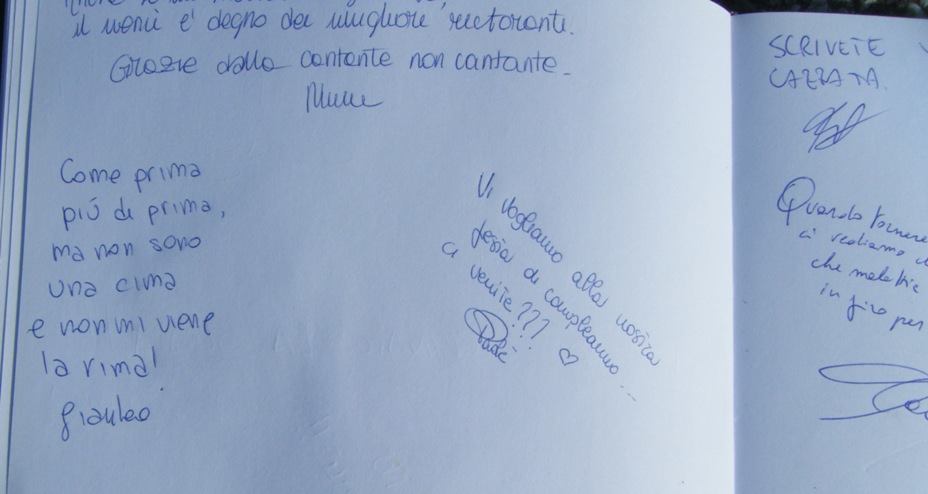 il menù è degno dei migliori ristoranti.
Grazie dalla cantante non cantante.
Come prima
più di prima,
ma non sono
una cima
e non mi viene
la rima!
Vi vogliamo alla nostra
festa di compleanno...
ci venite???
SCRIVETE
CAZZATA.
Quando
ci vediamo
che
in giro per